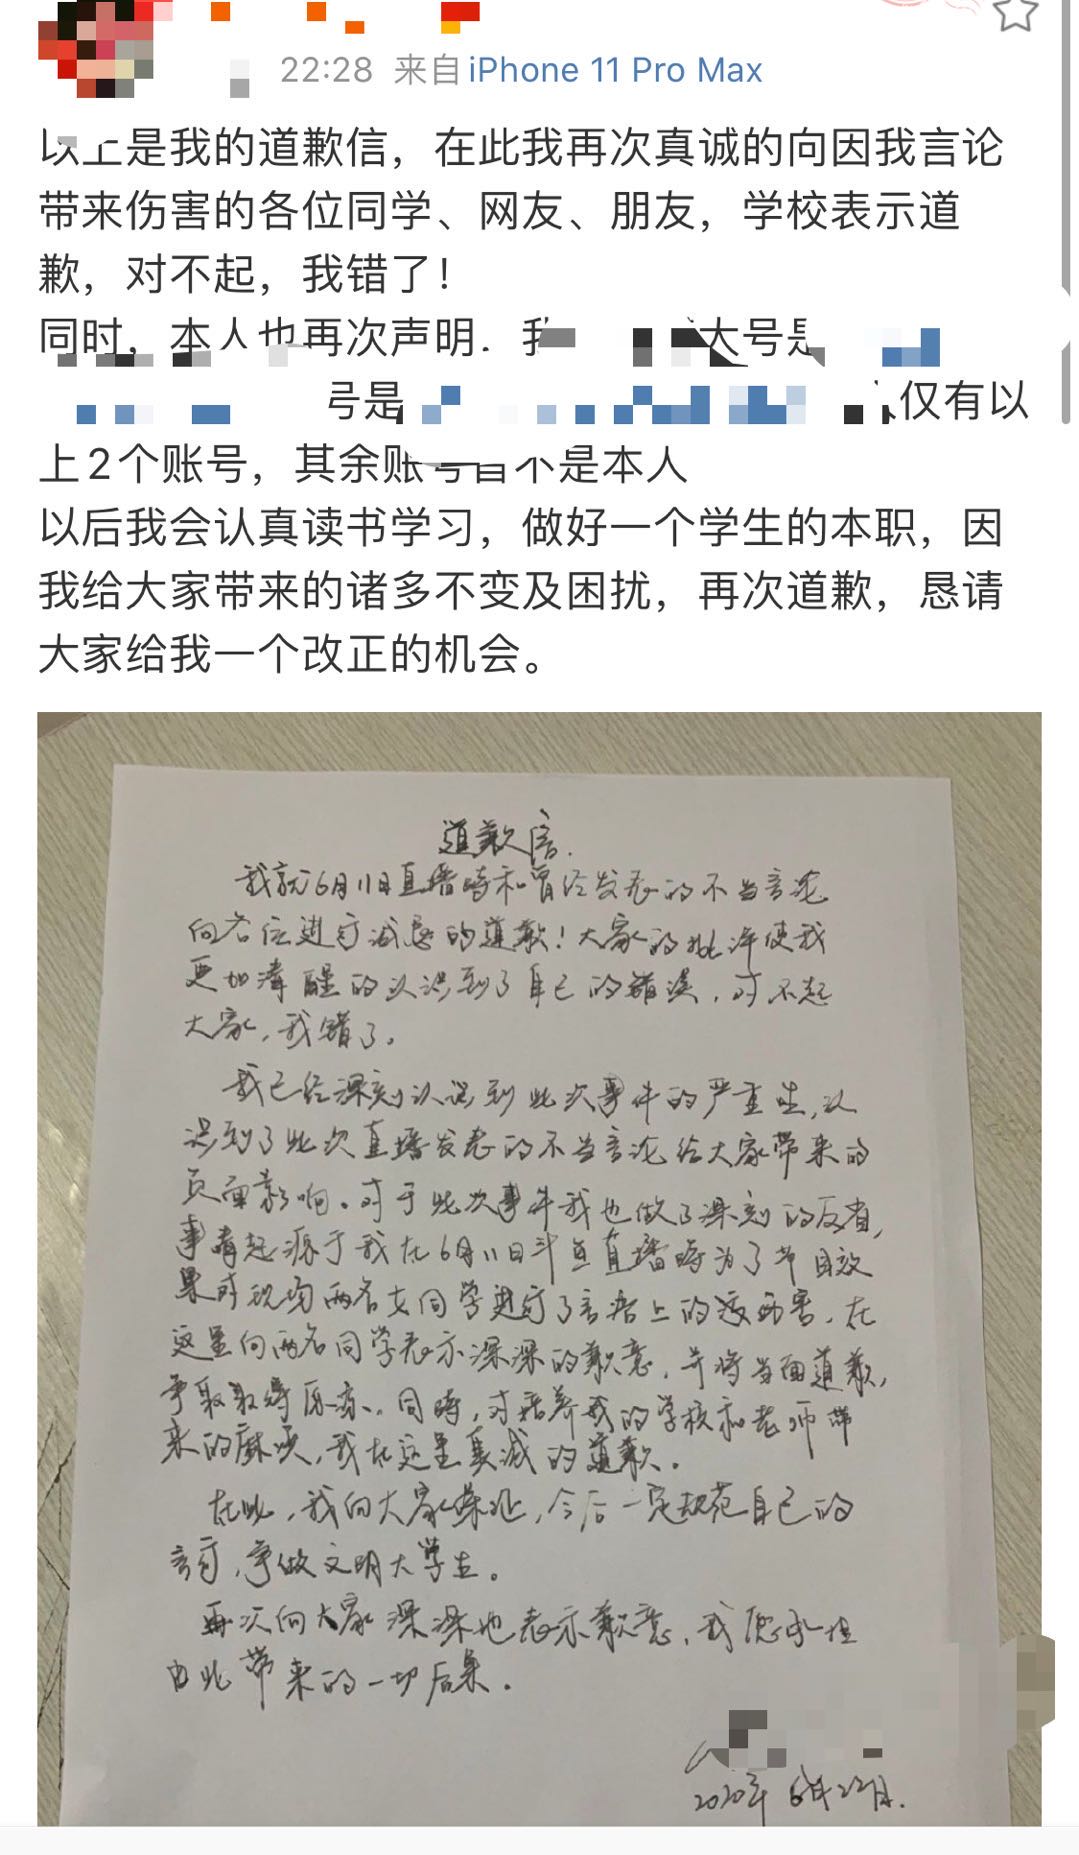 22:28 来自 iPhone 11 Pro Max
以上是我的道歉信，在此我再次真诚的向因我言论
带来伤害的各位同学、网友、朋友，学校表示道
歉，对不起，我错了！
同时，本人也再次声明. 大号是
号是 仅有以
上2个账号，其余账号皆不是本人
以后我会认真读书学习，做好一个学生的本职，因
我给大家带来的诸多不变及困扰，再次道歉，恳请
大家给我一个改正的机会。
道歉信.
我就6月11日直播时和曾经发表的不当言论
向各位进行诚恳的道歉！大家的批评使我
更加清醒的认识到了自己的错误，对不起
大家，我错了。
我已经深刻认识到此次事件的严重性，认
识到了此次直播发表的不当言论给大家带来的
负面影响。对于此次事件我也做了深刻的反省，
事情起源于我在6月11日斗鱼直播时为了节目效
果对现场两名女同学进行了言语上的 伤害，在
这里向两名同学表示深深的歉意，并将当面道歉，
争取取得原谅。同时，对培养我的学校和老师带
来的麻烦，我在这里真诚的道歉。
在此，我向大家保证，今后一定规范自己的
言行，争做文明大学生。
再次向大家深深地表示歉意，我愿承担
由此带来的一切后果。
2020年6月22日.